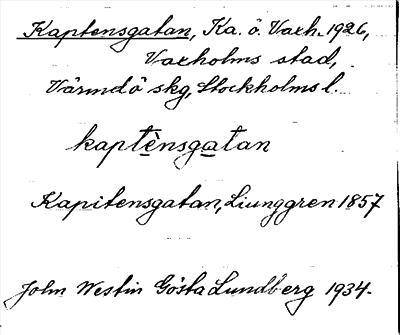 Kaptensgatan, Ka. ö. Vaxh. 1926,
Vaxholms stad,
Värmdö skg, Stockholms l.
kaptènsgatan
Kapitensgatan, Ljunggren 1857
John Westin Gösta Lundberg 1934.